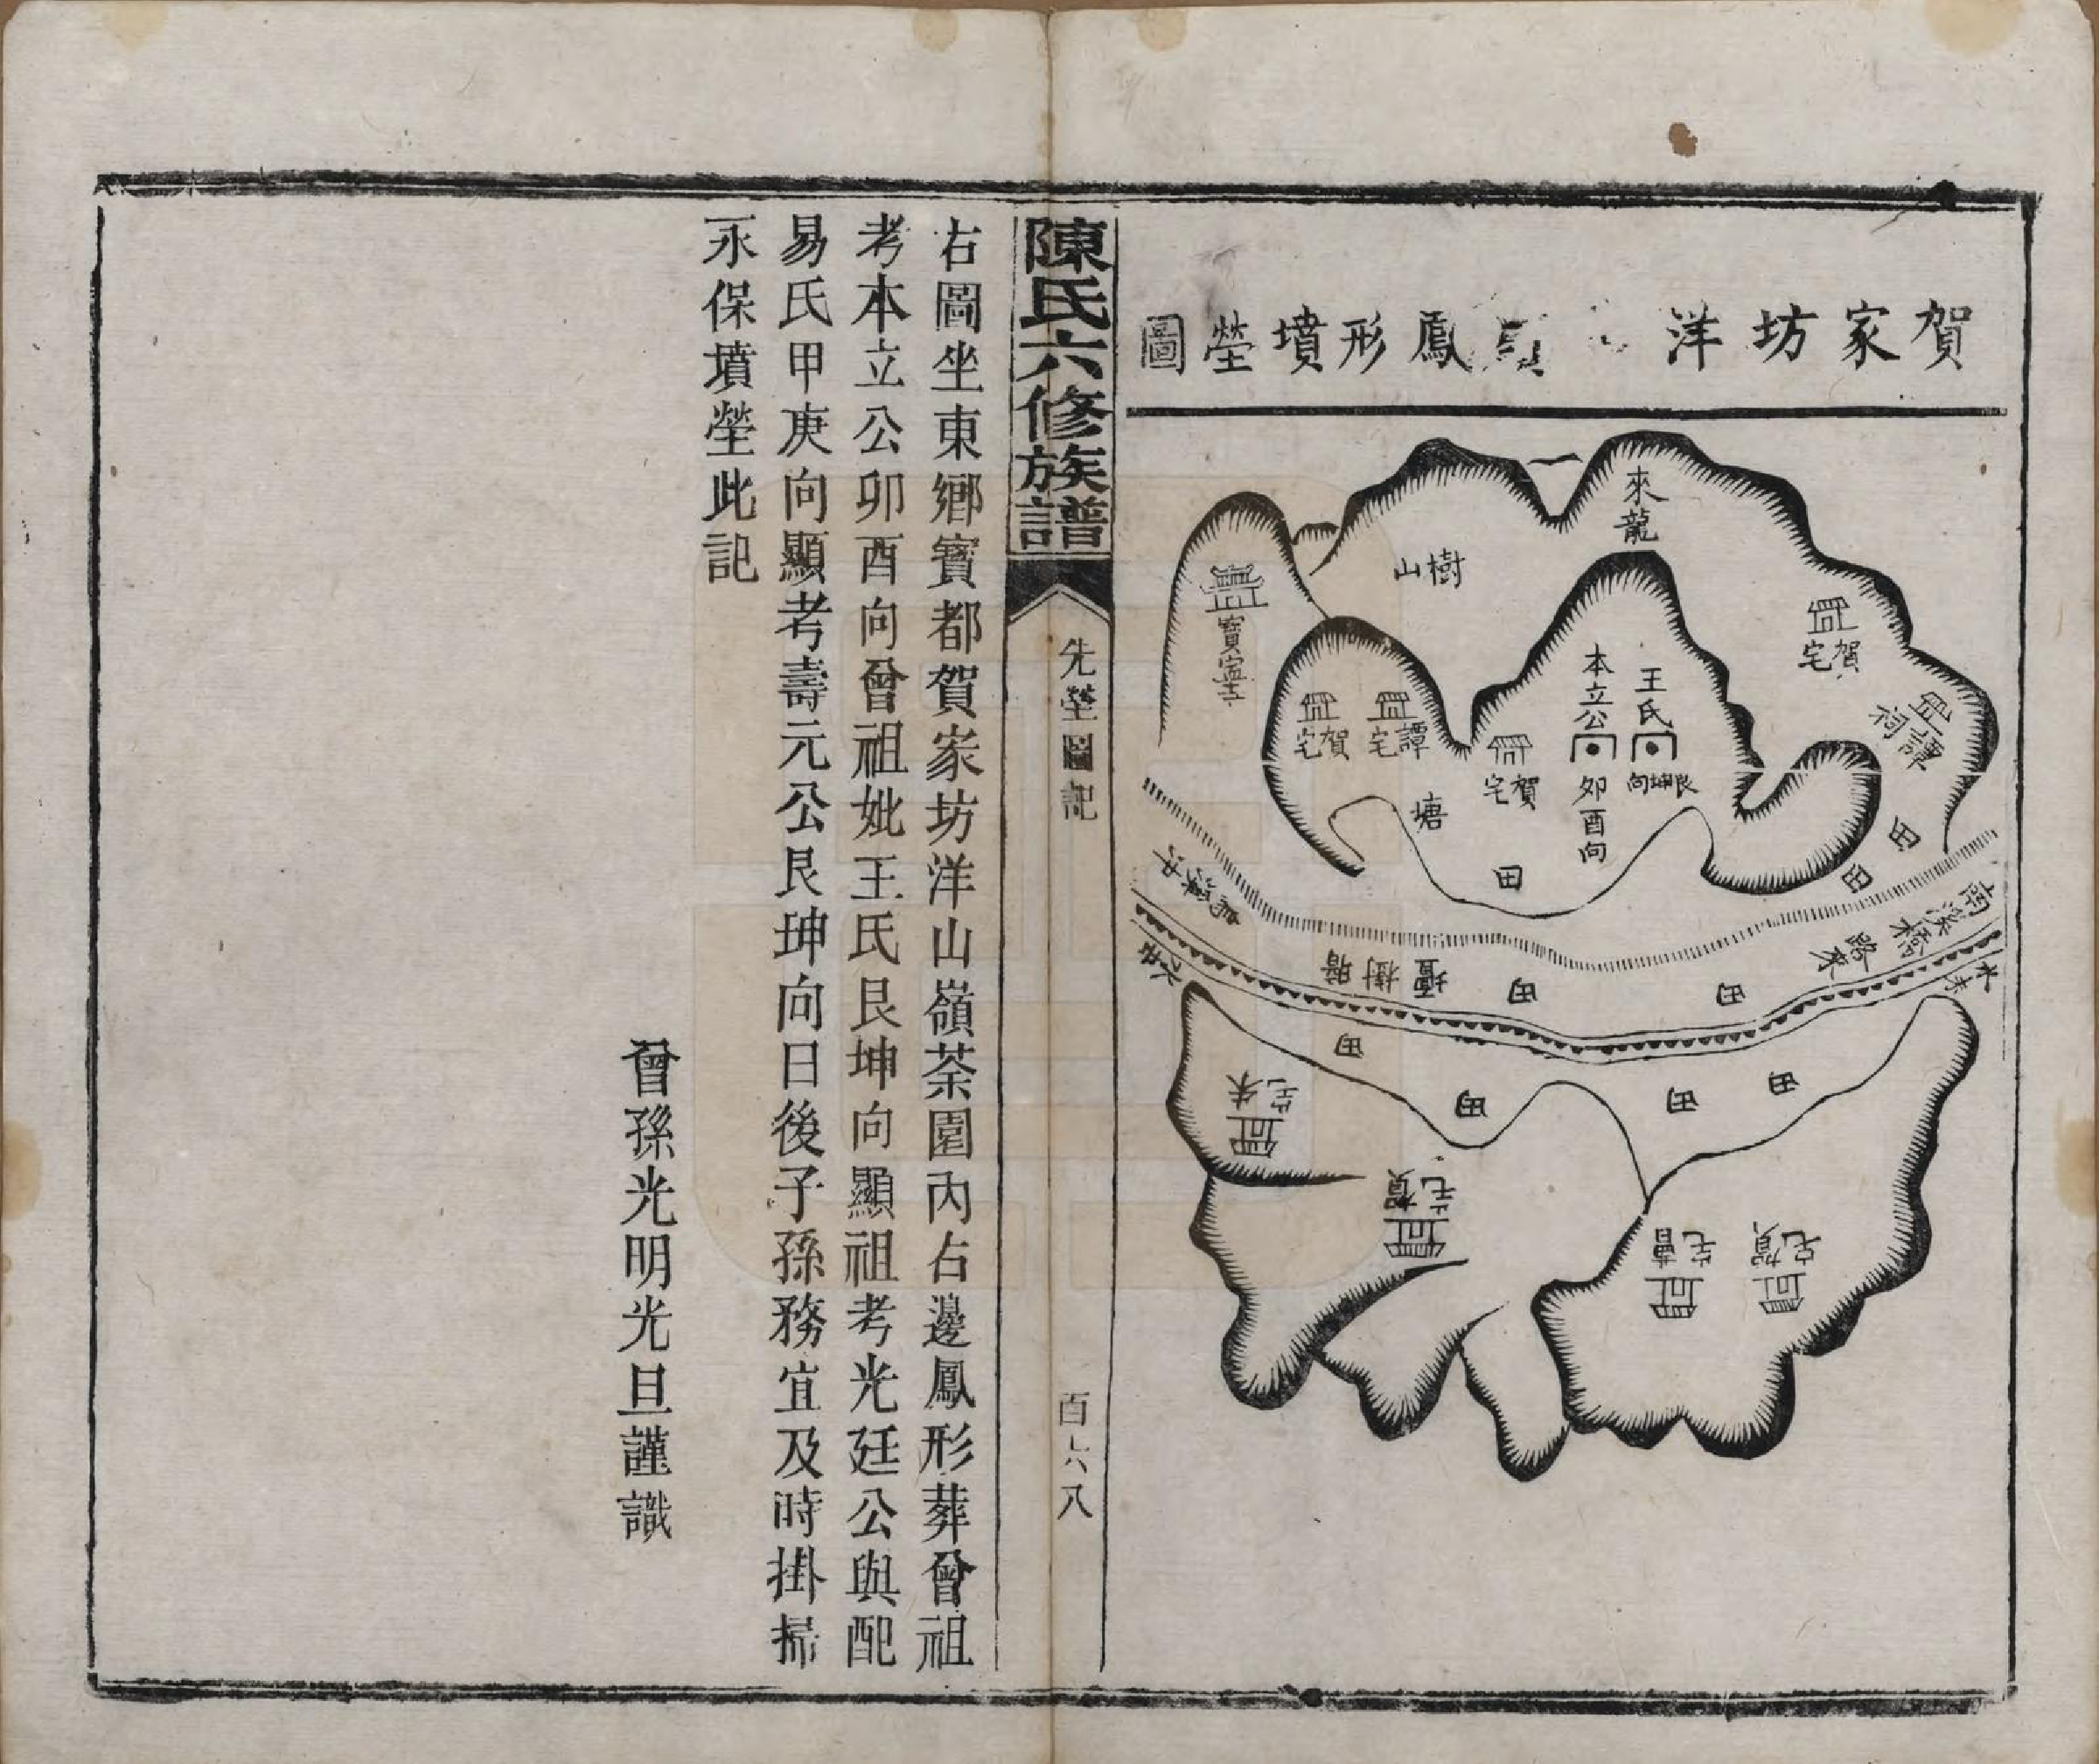 賀家坊洋 嶺鳳形墳塋圖
來龍
樹山
賀宅
譚祠
寶寧寺
王氏
艮坤向
本立公
卯酉向
賀宅
譚宅
賀宅
塘
田
田
田
南溪橋
路來
水來
水去
壇樹
田
田
田
田
田
田
朱宅
賀宅
曹宅
賀宅
陳氏六修族譜
先塋圖記
百六八
右圖坐東鄉寶都賀家坊洋山嶺茶園內右邊鳳形葬曾祖
考本立公卯酉向曾祖妣王氏艮坤向顯祖考光廷公與配
易氏甲庚向顯考壽元公艮坤向日後子孫務宜及時掛掃
永保墳塋此記
曾孫光明光旦謹識